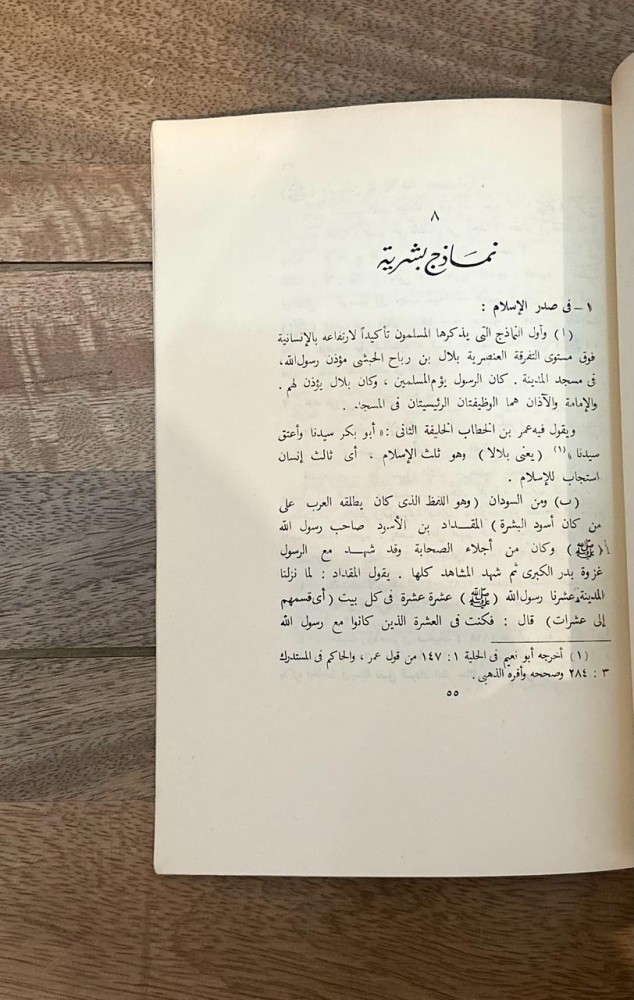 ٨
نماذج بشرية
١ - فى صدر الإسلام :
(١) وأول النماذج التى يذكرها المسلمون تأكيداً لارتفاعه بالإنسانية
فوق مستوى التفرقة العنصرية بلال بن رباح الحبشى مؤذن رسول الله،
فى مسجد المدينة . كان الرسول يؤم المسلمين ، وكان بلال يؤذن لهم .
والإمامة والآذان هما الوظيفتان الرئيسيتان فى المسجد .
ويقول فيه عمر بن الخطاب الخليفة الثانى : « أبو بكر سيدنا وأعتق
سيدنا » (١) (يعنى بلالا) وهو ثلث الإسلام . أى ثالث إنسان
استجاب للإسلام .
(ب) ومن السودان (وهو اللفظ الذى كان يطلقه العرب على
من كان أسود البشرة) المقداد بن الأسود صاحب رسول الله
(ﷺ) وكان من أجلاء الصحابة وقد شهد مع الرسول
غزوة بدر الكبرى ثم شهد المشاهد كلها . يقول المقداد : لما نزلنا
المدينة عشرنا رسول الله (ﷺ) عشرة عشرة فى كل بيت (أى قسمهم
إلى عشرات) قال : فكنت فى العشرة الذين كانوا مع رسول الله
(١) أخرجه أبو نعيم فى الحلية ١ : ١٤٧ من قول عمر ، والحاكم فى المستدرك
٣ : ٢٨٤ وصححه وأقره الذهبى .
٥٥